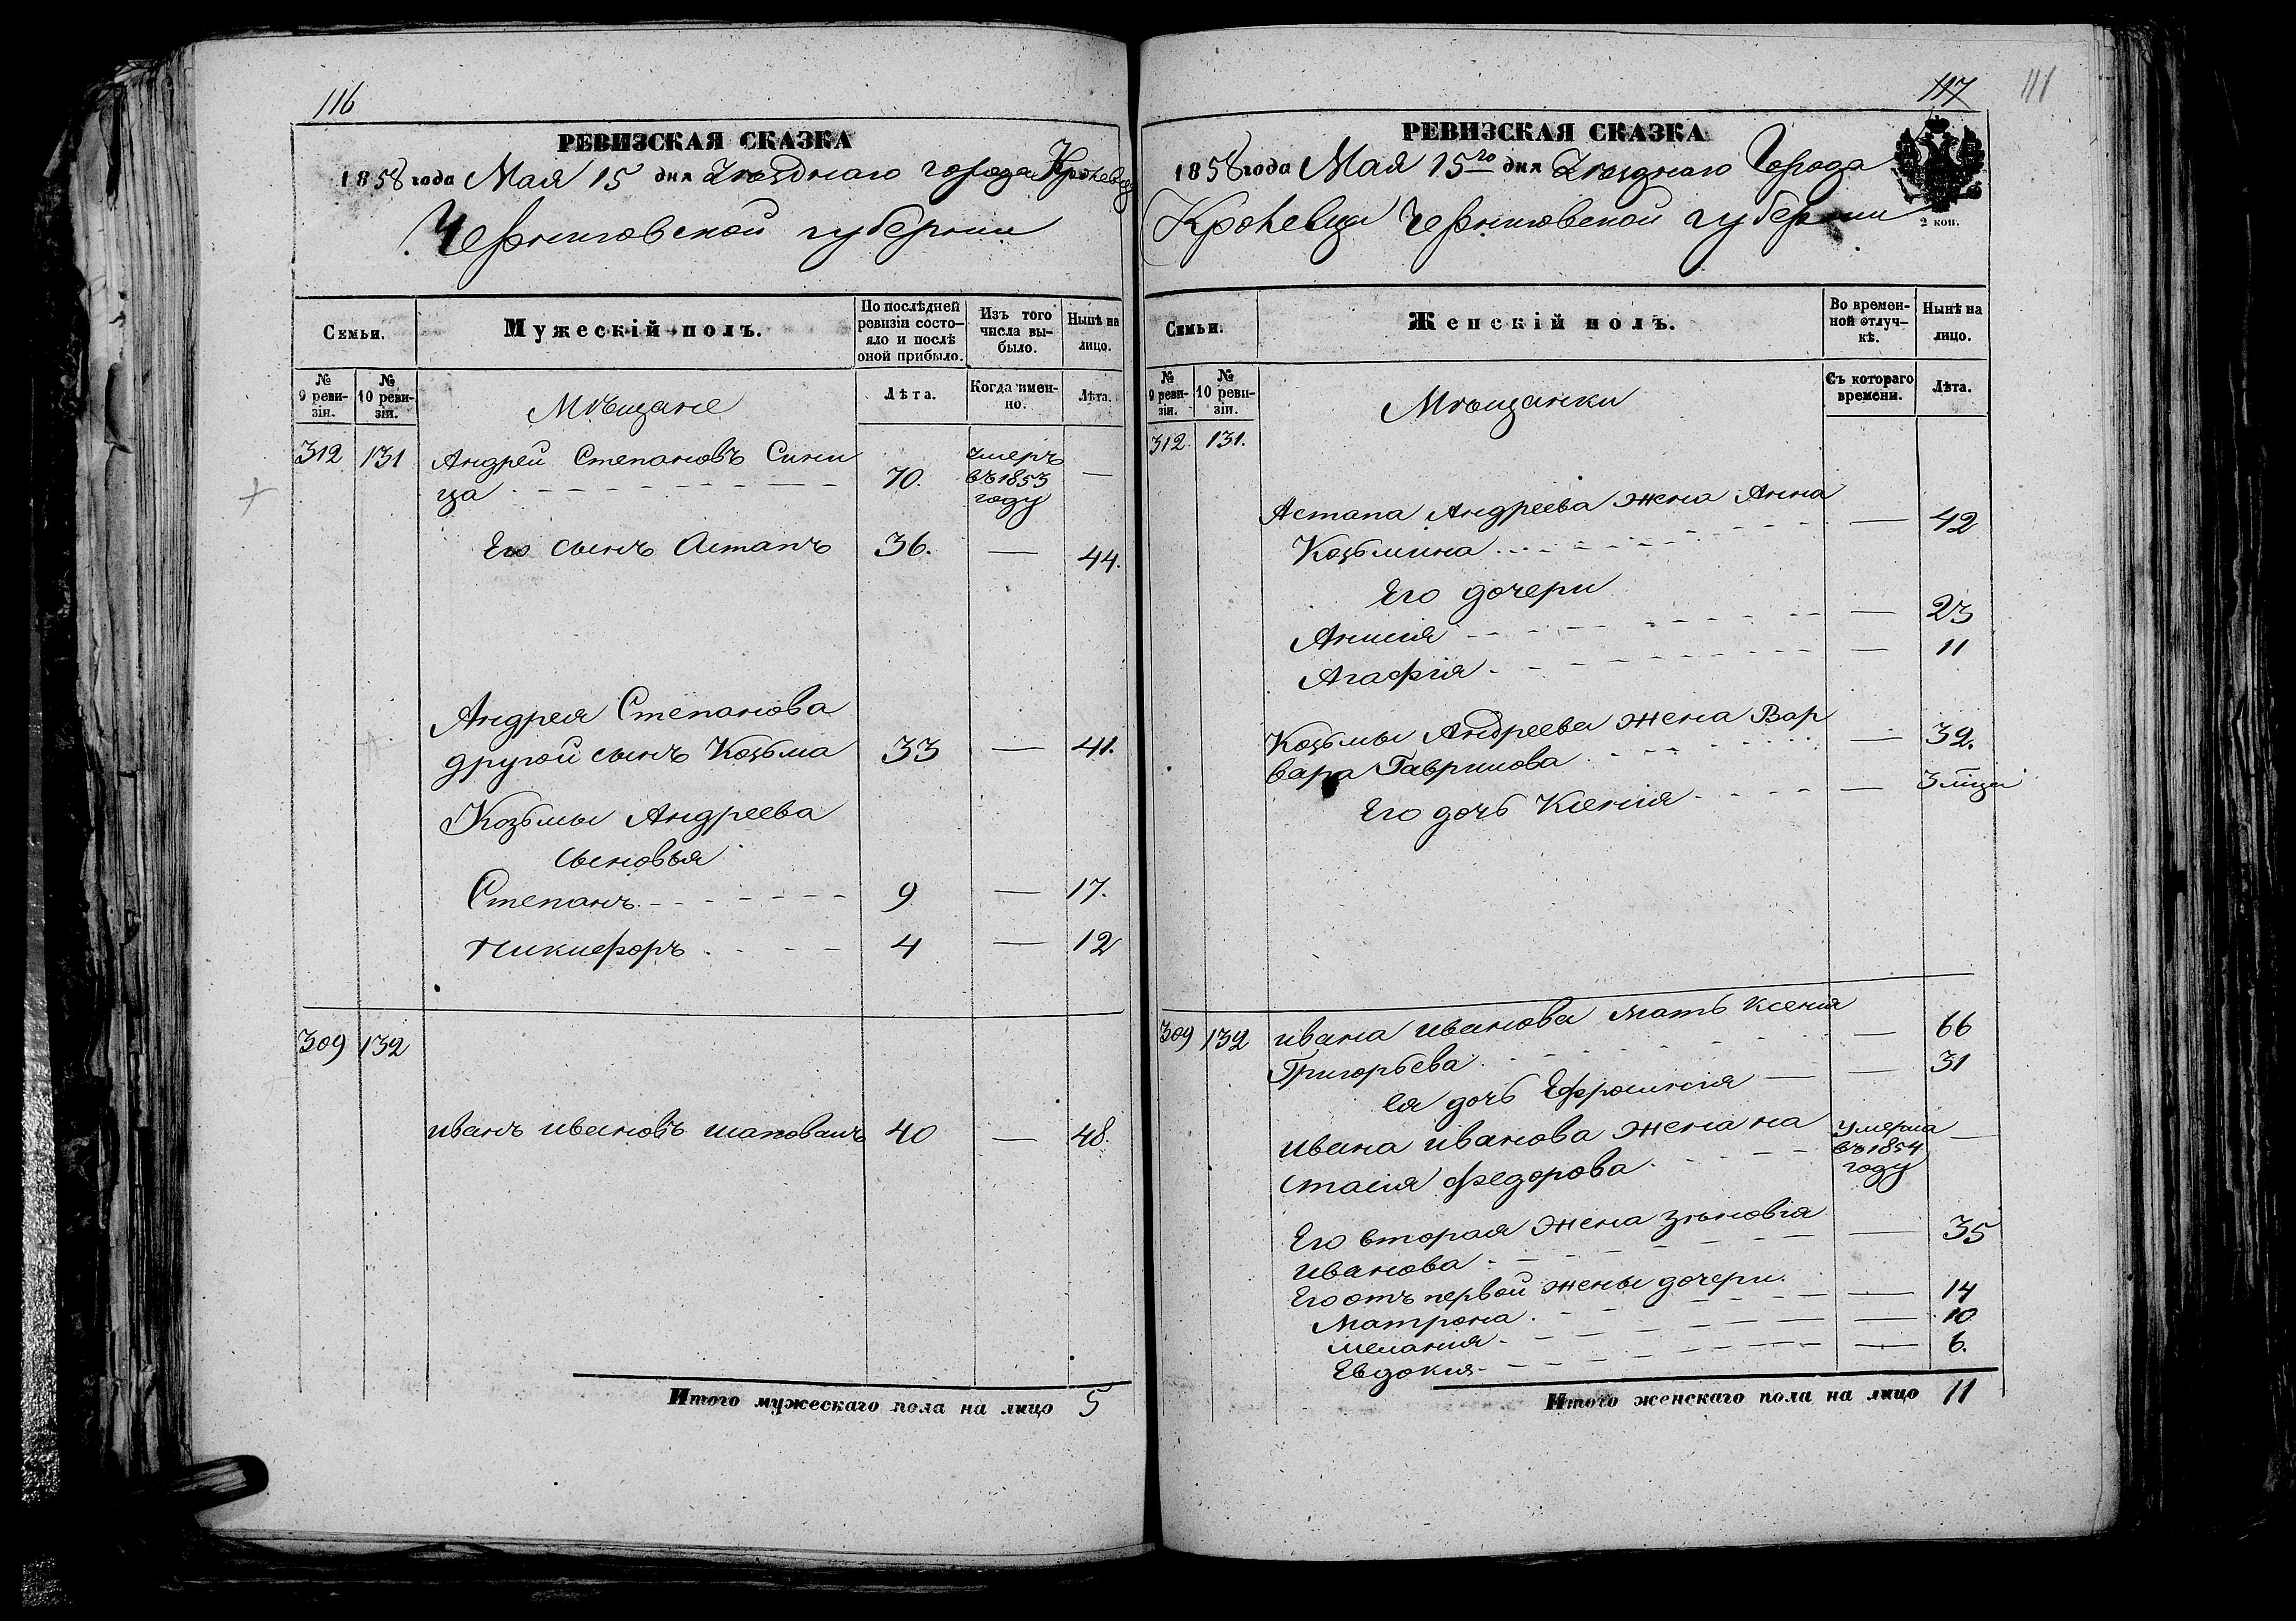 116
РЕВИЗСКАЯ СКАЗКА
1858 года Мая 15 дня Уѣзднаго города Кролевца
Черниговской губернии
Семьи.
Мужескій полъ.
По послѣдней ревизіи состояло и послѣ оной прибыло.
Изъ того числа выбыло.
Нынѣ на лицо.
№ 9 ревизіи.
№ 10 ревизіи.
Мѣщане
Лѣта.
Когда именно.
Лѣта.
312 131 Андрей Степановъ Сини
ца 70. умеръ въ 1853 году —
Его сынъ Астапъ 36. — 44.
Андрея Степанова
другой сынъ Козьма 33 — 41.
Козьмы Андреева
сыновья
Степанъ 9 — 17.
Никифоръ 4 — 12
309 132
иванъ ивановъ шаповалъ 40 — 48.
Итого мужескаго пола на лицо 5
117 111
РЕВИЗСКАЯ СКАЗКА
1858 года Мая 15го дня Уѣзднаго Города
Кролевца Черниговской губернии
2 коп.
Семьи.
Женскій полъ.
Во временной отлучкѣ.
Нынѣ на лицо.
№ 9 ревизіи.
№ 10 ревизіи.
Мѣщанки
Съ котораго времени.
Лѣта.
312. 131.
Астапа Андреева жена Анна
Козьмина — 42
Его дочери
Анисія — 23
Агафія — 11
Козьмы Андреева жена Вар
вара Гаврилова — 32.
Его дочь Ксенія — 3 мцa
309 132 ивана иванова мать Ксенія
Григорьева — 66
ея дочь Ефросинія — 31
ивана иванова жена на
стасія федорова умерла въ 1854 году —
Его вторая жена зѣновія
иванова — 35
Его отъ первой жены дочери
матрона — 14
меланія — 10
Евдокия — 6.
Итого женскаго пола на лицо 11